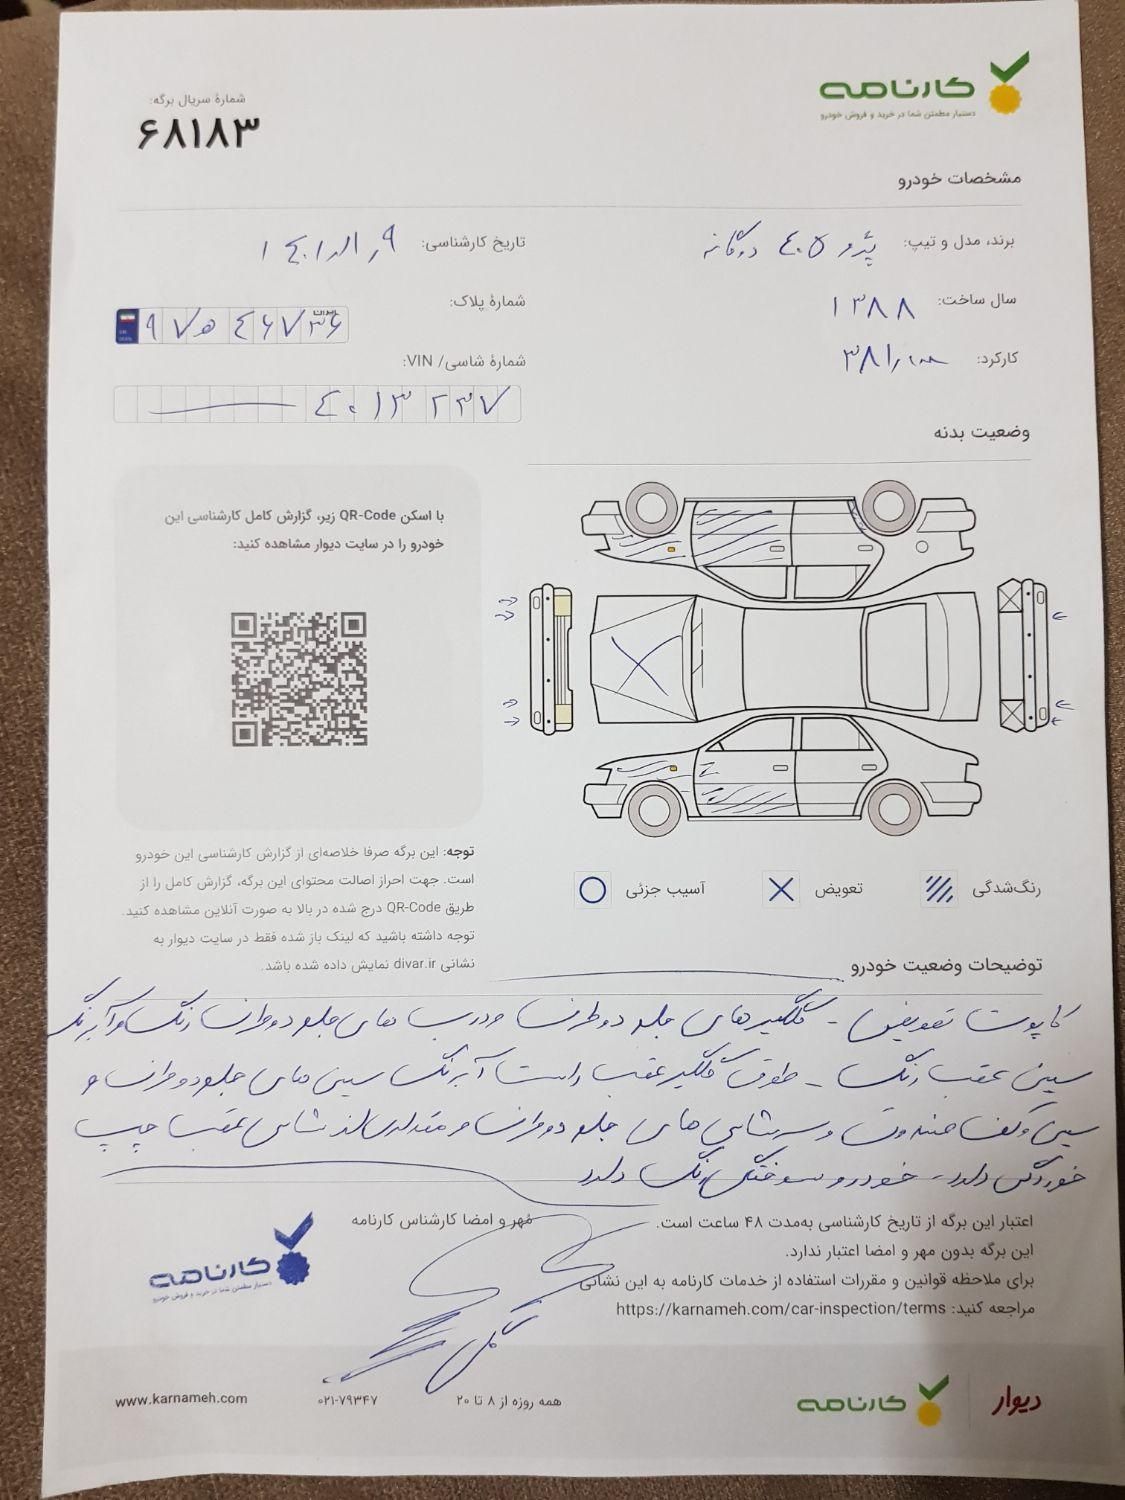 کارنامه
دستیار مطمئن شما در خرید و فروش خودرو
شمارهٔ سریال برگه:
۶۸۱۸۳
مشخصات خودرو
برند، مدل و تیپ: پژو ۴۰۵ دوگانه
تاریخ کارشناسی:
سال ساخت: ۱۳۸۸
شمارهٔ پلاک: ۹۷ ه ۴۶۷ ایران ۳۶
کارکرد: ۳۸۱٫۰۰۰
شمارهٔ شاسی/ VIN: ۴۰۱۳۲۳۷
وضعیت بدنه
با اسکن QR-Code زیر، گزارش کامل کارشناسی این
خودرو را در سایت دیوار مشاهده کنید:
توجه: این برگه صرفا خلاصه‌ای از گزارش کارشناسی این خودرو
است. جهت احراز اصالت محتوای این برگه، گزارش کامل را از
طریق QR-Code درج شده در بالا به صورت آنلاین مشاهده کنید.
توجه داشته باشید که لینک باز شده فقط در سایت دیوار به
نشانی divar.ir نمایش داده شده باشد.
رنگ‌شدگی
تعویض
آسیب جزئی
توضیحات وضعیت خودرو
کاپوت تعویض - گلگیرهای جلو دو طرف و درب های جلو دو طرف رنگ و آبرنگ
سینی عقب رنگ - طوق گلگیر عقب راست آبرنگ سینی های جلو دو طرف و
سینی و کف صندوق و سرشاسی های جلو دو طرف و مقداری از شاسی عقب چپ
خوردگی دارد، خودرو سوختگی رنگ دارد
اعتبار این برگه از تاریخ کارشناسی به‌مدت ۴۸ ساعت است.
این برگه بدون مهر و امضا اعتبار ندارد.
برای ملاحظه قوانین و مقررات استفاده از خدمات کارنامه به این نشانی
مراجعه کنید: https://karnameh.com/car-inspection/terms
مُهر و امضا کارشناس کارنامه
کارنامه
دستیار مطمئن شما در خرید و فروش خودرو
دیوار
کارنامه
همه روزه از ۸ تا ۲۰
۰۲۱-۷۹۳۴۷
www.karnameh.com